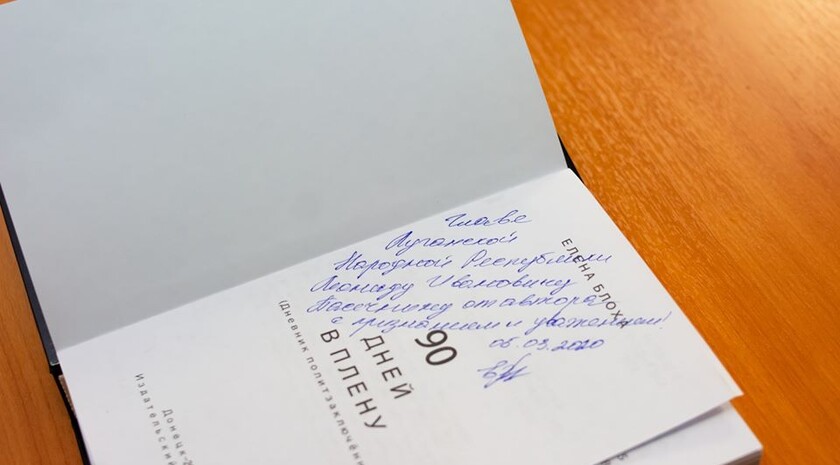 Главе
Луганской
Народной Республики
Леониду Ивановичу
Пасечнику от автора
с признанием и уважением!
05.03.2020
ЕЛЕНА БЛОХА
90
ДНЕЙ
В ПЛЕНУ
(Дневник политзаключён
Донецк-2
Издательский